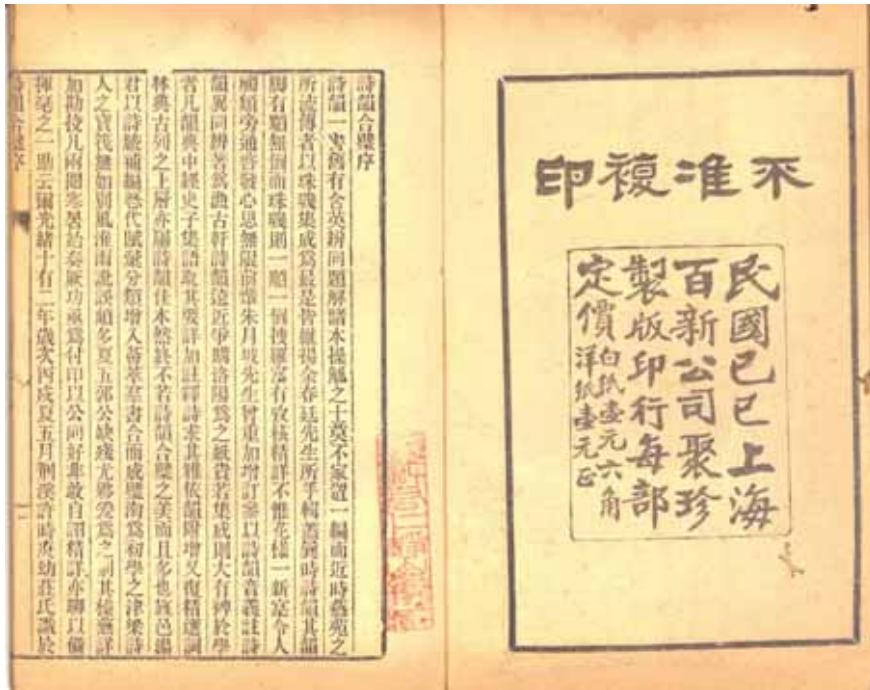 不准複印
民國己巳上海
百新公司聚珍
製版印行每部
定價白紙壹元六角
洋紙壹元正
詩韻合璧序
詩韻一書舊有含英辨同題解諸本操觚之士莫不家置一編而近時藝苑之
所流傳者以珠璣集成爲最是皆維揚余春廷先生所手輯蓋曩時詩韻其韻
脚有題無個而珠璣則一題一個搜羅富有攷核精詳不惟花樣一新寔令人
觸類旁通啓發心思無限前輩朱月坡先生曾重加增訂參以詩韻音義註詩
韻異同辨著爲漁古軒詩韻遠近爭購洛陽爲之紙貴若集成則大有裨於學
者凡韻典中經史子集語取其要詳加註釋詩求其雅依韻附增又復精選詞
林典古列之上層亦屬詩韻佳本然終不若詩韻合璧之美而且多也旌邑湯
君以詩腋補編歷代賦彙分類增入薈萃羣書合而成璧洵爲初學之津梁詩
人之寶筏無如別風淮雨訛誤頗多夏五郭公缺殘尤夥爰爲之詳
加勘校凡兩閱寒暑始奏厥功亟爲付印以公同好非敢自詡精詳亦聊以備
揮毫之一助云爾光緒十有二年歲次丙戌夏五月荆溪許時庚幼莊氏識於
詩韻合璧序